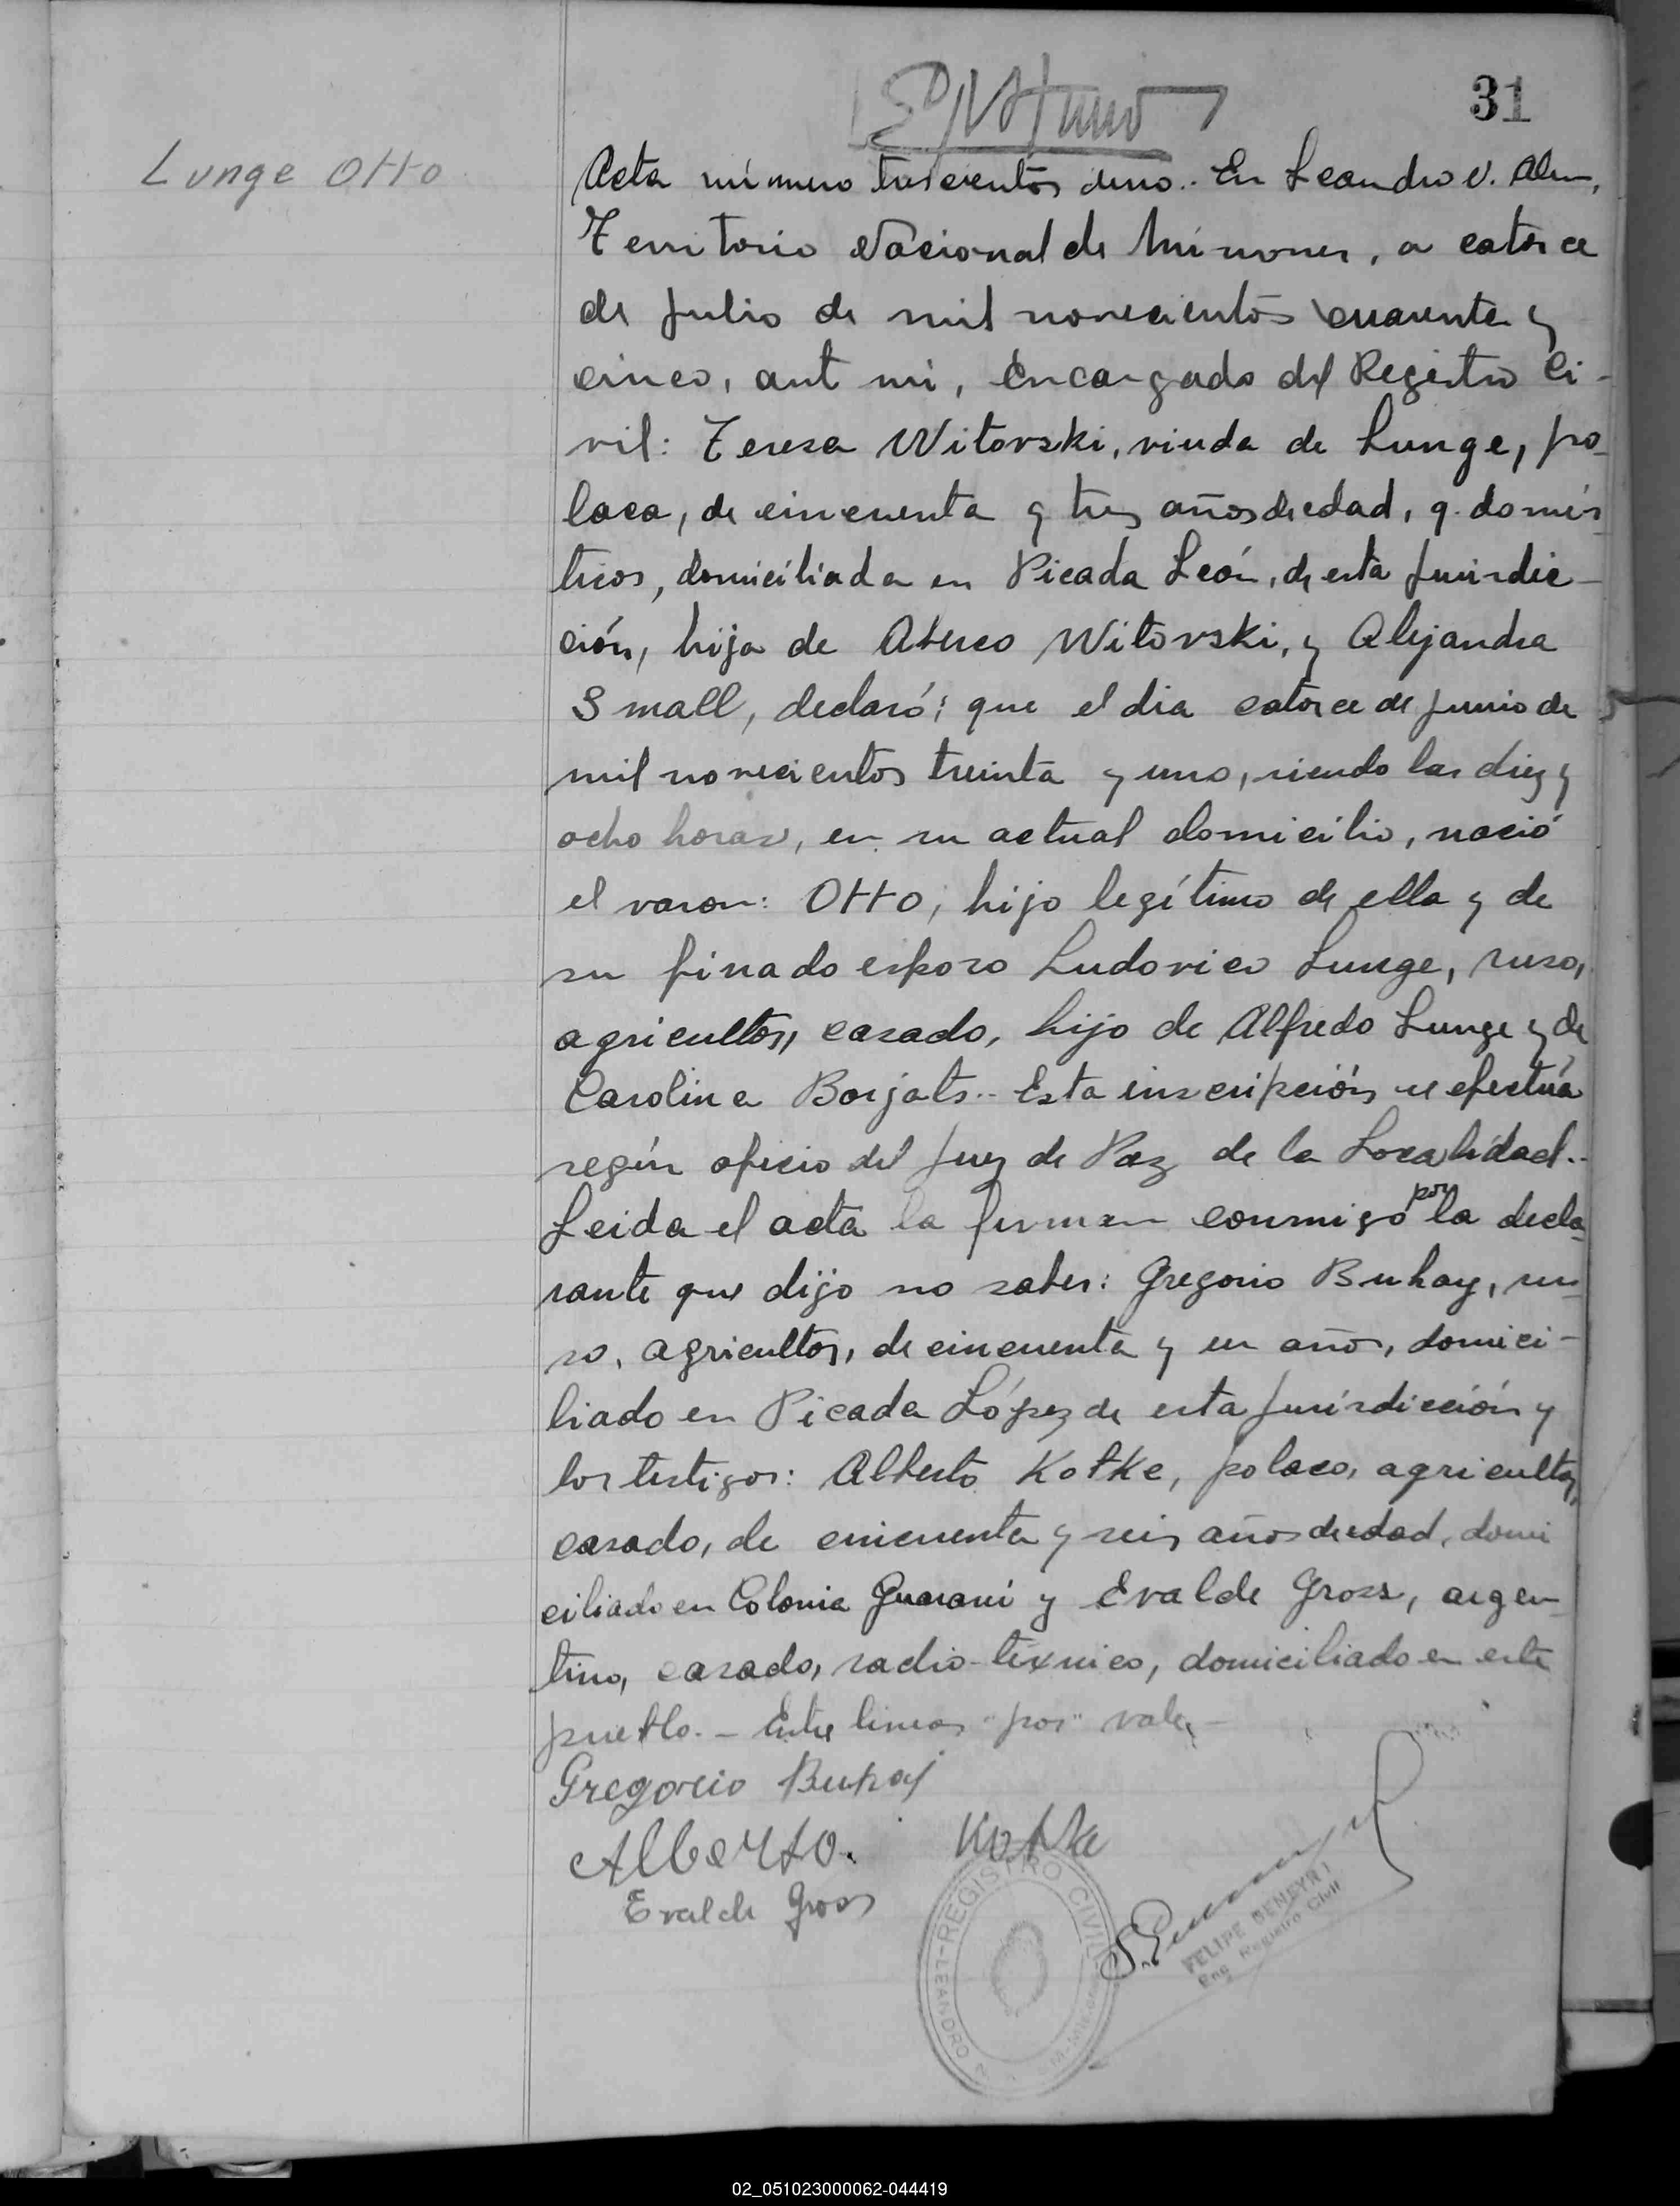 31
Lunge Otto
Acta número trescientos uno.. En Leandro N. Alem,
Territorio Nacional de Misiones, a catorce
de Julio de mil novecientos cuarenta y
cinco, ante mi, Encargado del Registro Ci-
vil: Teresa Witovski, viuda de Lunge, po-
laca, de cincuenta y tres años de edad, q. domés-
ticos, domiciliada en Picada León, de esta Jurisdic-
ción, hija de Witovski, y Alejandra
Small, declaró: que el dia catorce de Junio de
mil novecientos treinta y uno, siendo las diez y
ocho horas, en su actual domicilio, nació
el varon: Otto, hijo legítimo de ella y de
su finado esposo Ludovico Lunge, ruso,
agricultor, casado, hijo de Alfredo Lunge y de
Carolina Borjats.. Esta inscripción se efectúa
según oficio del Juez de Paz de la Localidad..
Leida el acta la firman conmigo por la decla-
rante que dijo no saber: Gregorio Buhay, ru-
so, agricultor, de cincuenta y un años, domici-
liado en Picada López de esta Jurisdicción y
los testigos: Alberto Kotke, polaco, agricultor,
casado, de cincuenta y seis años de edad, domi
ciliado en Colonia Guarani y Evalde Gross, argen-
tino, casado, radio-téxnico, domiciliado en este
pueblo. - Entre lineas "por" vale. -
Gregorio
Alberto. Kotke
Evalde Gross
REGISTRO CIVIL
LEANDRO
FELIPE BENEYRI
Enc. Registro Civil
02_051023000062-044419